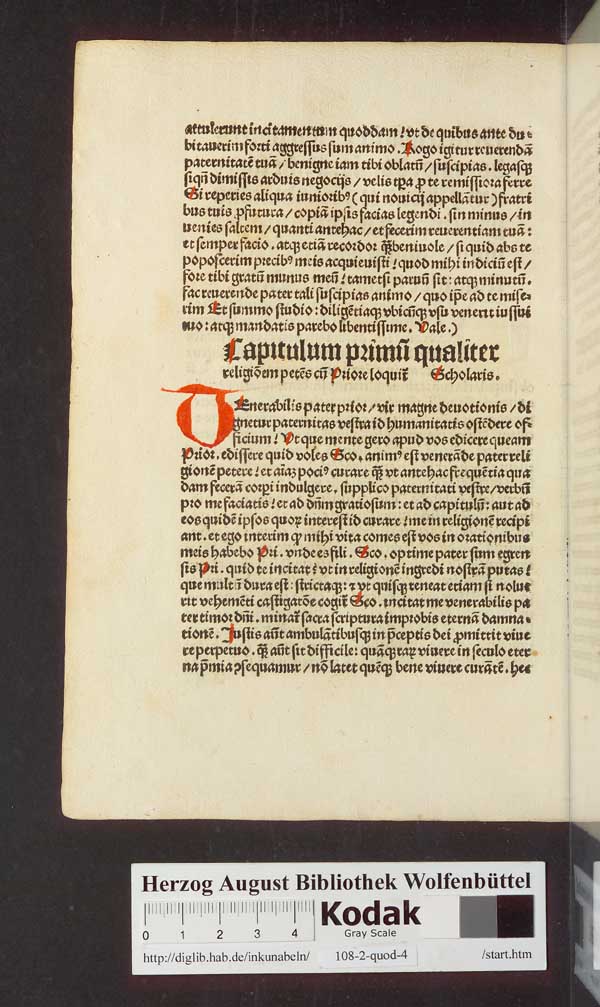 attulerunt incitamentum quoddam / vt de quibus ante du-
bitauerim forti aggressus sum animo. Rogo igitur reuerendā
paternitatē tuā / benigne iam tibi oblatū / suscipias. legasqꝫ
siqn̄ dimissis arduis negocijs / velis tꝑa ꝓ te remissiora ferre
Si reperies aliqua iuniorib⁹ (qui nouicij appellātur) fratri
bus tuis ꝓfutura / copiā ipsis facias legendi. sin minus / in
uenies saltem / quanti antehac / et fecerim reuerentiam tuā:
et semper facio. atqꝫ etiā recordor q̄ꝫ beniuole / si quid abs te
poposcerim precib⁹ meis acquieuisti / quod mihi indiciū est /
fore tibi gratū munus meū / tametsi paruū sit: atqꝫ minutū.
fac reuerende pater tali suscipias animo / quo ip̄e ad te mise-
rim Et summo studio: diligētiaqꝫ vbicūqꝫ vsu venerit iussui
tuo: atqꝫ mandatis parebo libentissime. Vale.)
Capitulum primū qualiter
religiōem petēs cū Priore loquit᷑ Scholaris.
VEnerabilis pater prior / vir magne deuotionis / di
gnetur paternitas vestra id humanitatis ostēdere of-
ficium / Vt que mente gero apud vos edicere queam
Prior. edissere quid voles Sco. anim⁹ est venerāde pater reli
gionē petere / et aīaꝫ poci⁹ curare q̄ꝫ vt antehac frequētia qua
dam fecerā corꝑi indulgere. supplico paternitati vestre / verbū
pro me faciatis / et ad dn̄m gratiosum: et ad capitulū: aut ad
eos quidē ipsos quoꝝ interest id curare / me in religionē recipi
ant. et ego interim ꝙ mihi vita comes est vos in orationibus
meis habebo Pri. vnde es fili. Sco. optime pater sum egren
sis Pri. quid te incitat / vt in religionē ingredi nostrā putas /
que multū dura est: strictaqꝫ: et vt quisqꝫ teneat etiam si nolue
rit vehemēti castigatōe cogit᷑ Sco. incitat me venerabilis pa
ter timor dn̄i. minat᷑ sacra scriptura improbis eternā damna-
tionē. Iustis aūt ambulātibusqꝫ in p̄ceptis dei ꝓmittit viue
re perpetuo. q̄ꝫ aūt sit difficile: quāqꝫ raꝝ viuere in seculo eter
na p̄mia ꝯsequamur / nō latet quēqꝫ bene viuere curātē. hec
Herzog August Bibliothek Wolfenbüttel
0 1 2 3 4
Kodak
Gray Scale
http://diglib.hab.de/inkunabeln/ 108-2-quod-4 /start.htm